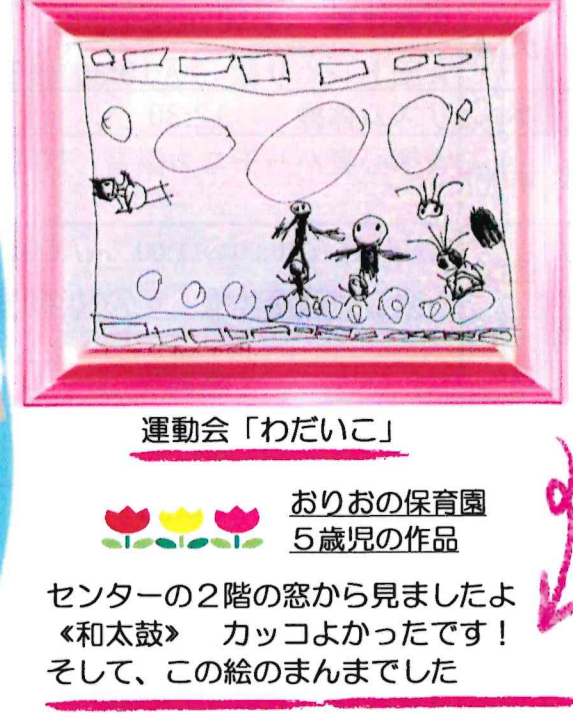 運動会「わだいこ」
おりおの保育園
５歳児の作品
センターの２階の窓から見ましたよ
≪和太鼓≫　カッコよかったです！
そして、この絵のまんまでした